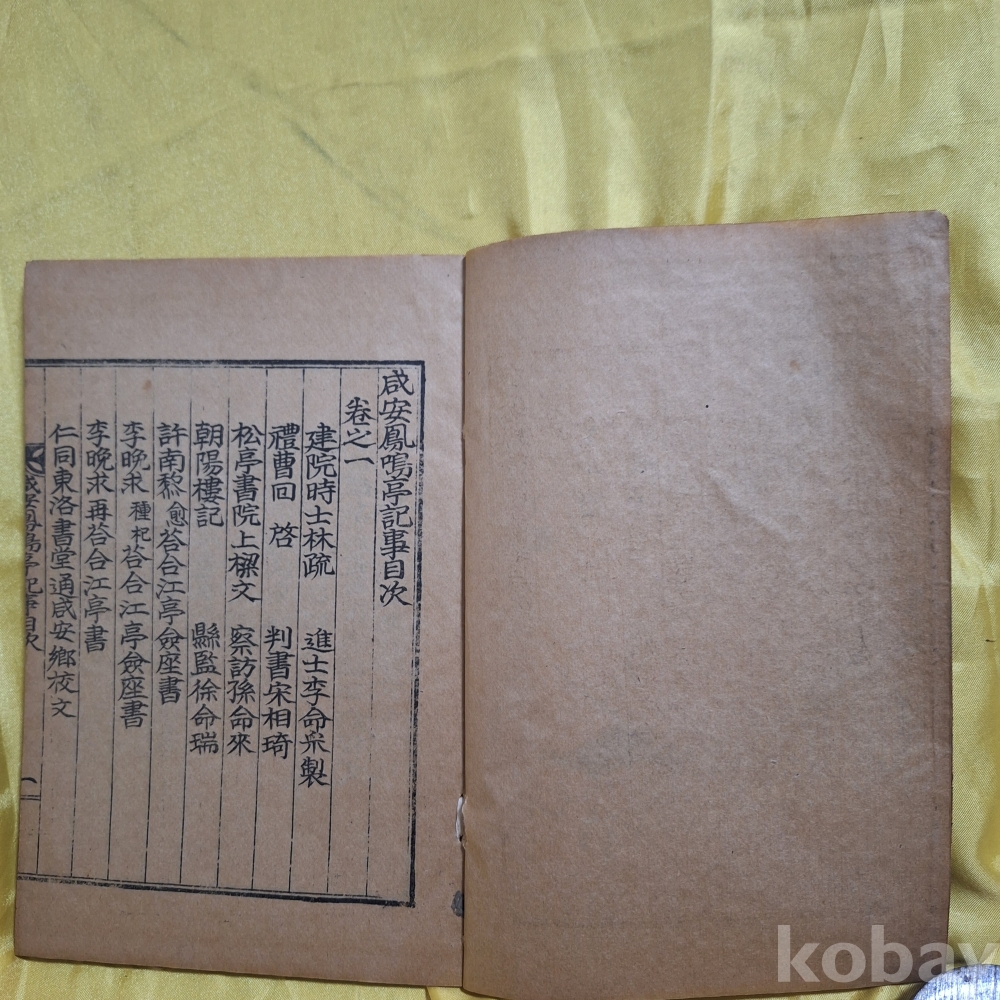 咸安鳳鳴亭記事目次
卷之一
建院時士林疏 進士李命䆃製
禮曹回啓 判書宋相琦
松亭書院上樑文 察訪孫命來
朝陽樓記 縣監徐命瑞
許南黎愈荅合江亭僉座書
李晚求種杞荅合江亭僉座書
李晚求再荅合江亭書
仁同東洛書堂通咸安鄉校文
咸安鳳鳴亭記事目次
一
kobay